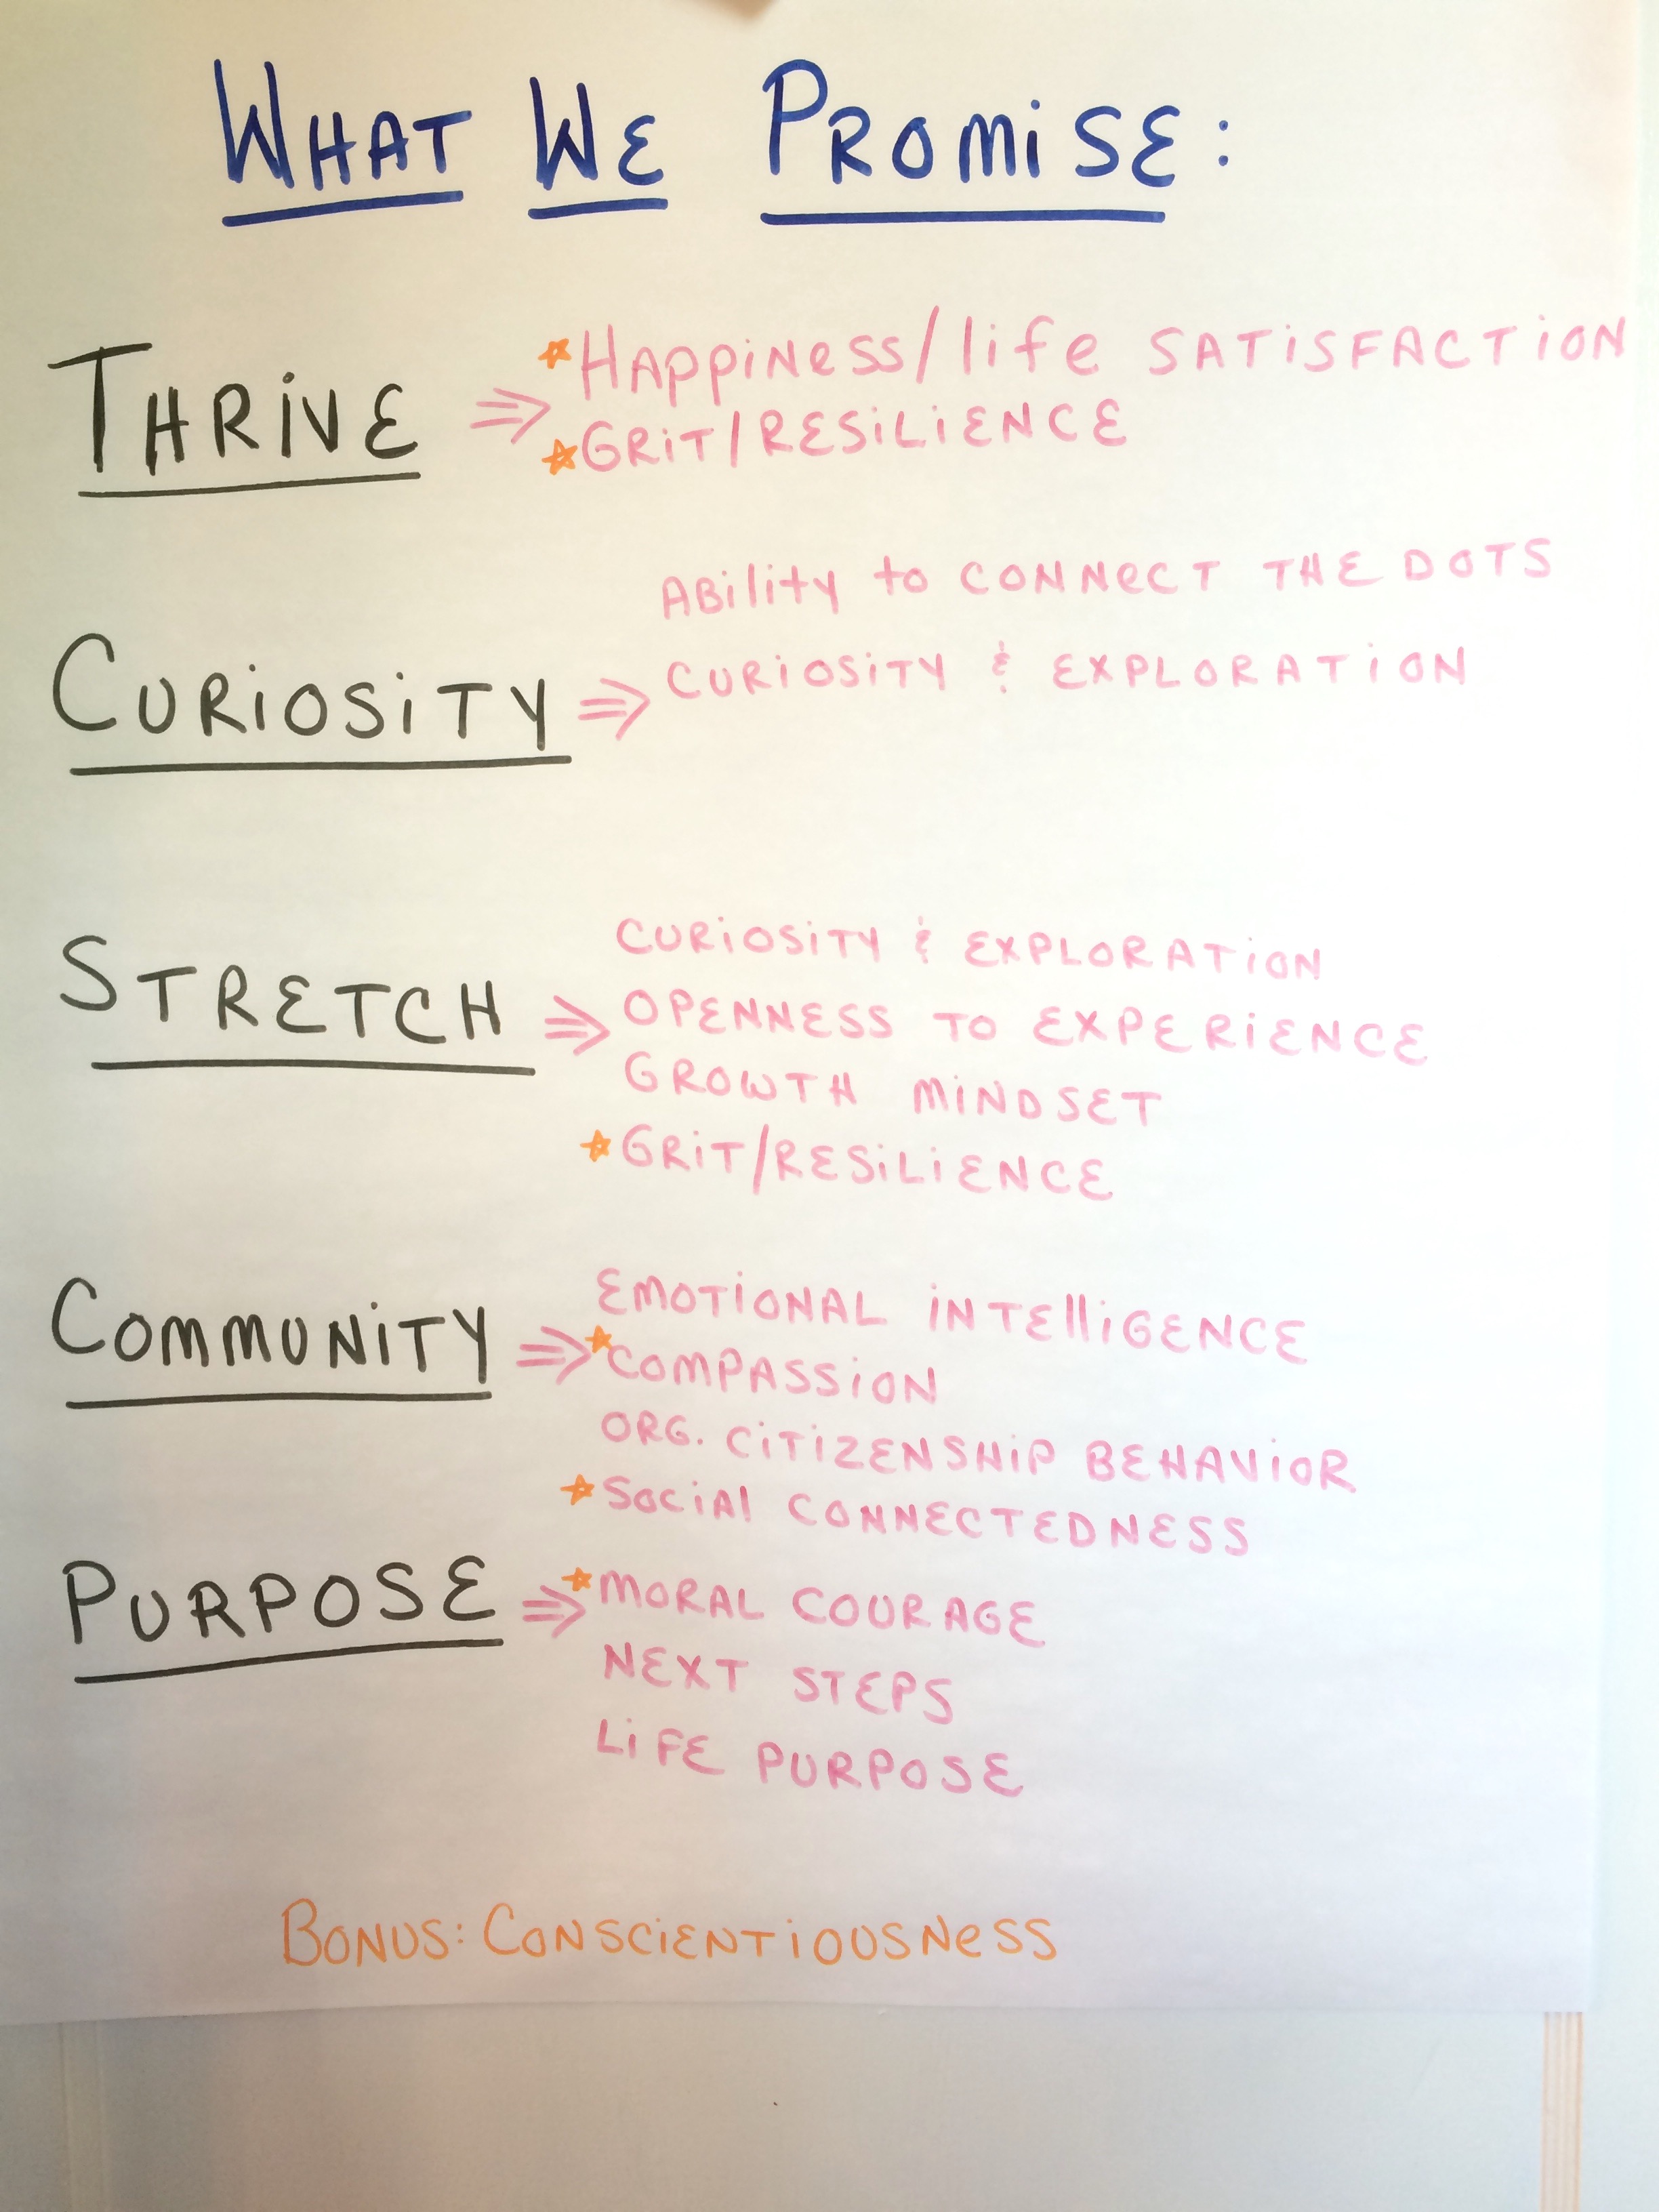 WHAT WE PROMISE:
THRIVE ⇒ ☆HAPPINESS/life SATISFACTION
☆GRIT/RESILIENCE
ABILITY to CONNECT THE DOTS
CURIOSITY ⇒ CURIOSITY & EXPLORATION
CURIOSITY & EXPLORATION
STRETCH ⇒ OPENNESS TO EXPERIENCE
GROWTH MINDSET
☆GRIT/RESILIENCE
EMOTIONAL INTELLIGENCE
COMMUNITY ⇒ ☆COMPASSION
ORG. CITIZENSHIP BEHAVIOR
☆SOCIAL CONNECTEDNESS
PURPOSE ⇒ ☆MORAL COURAGE
NEXT STEPS
LIFE PURPOSE
BONUS: CONSCIENTIOUSNESS